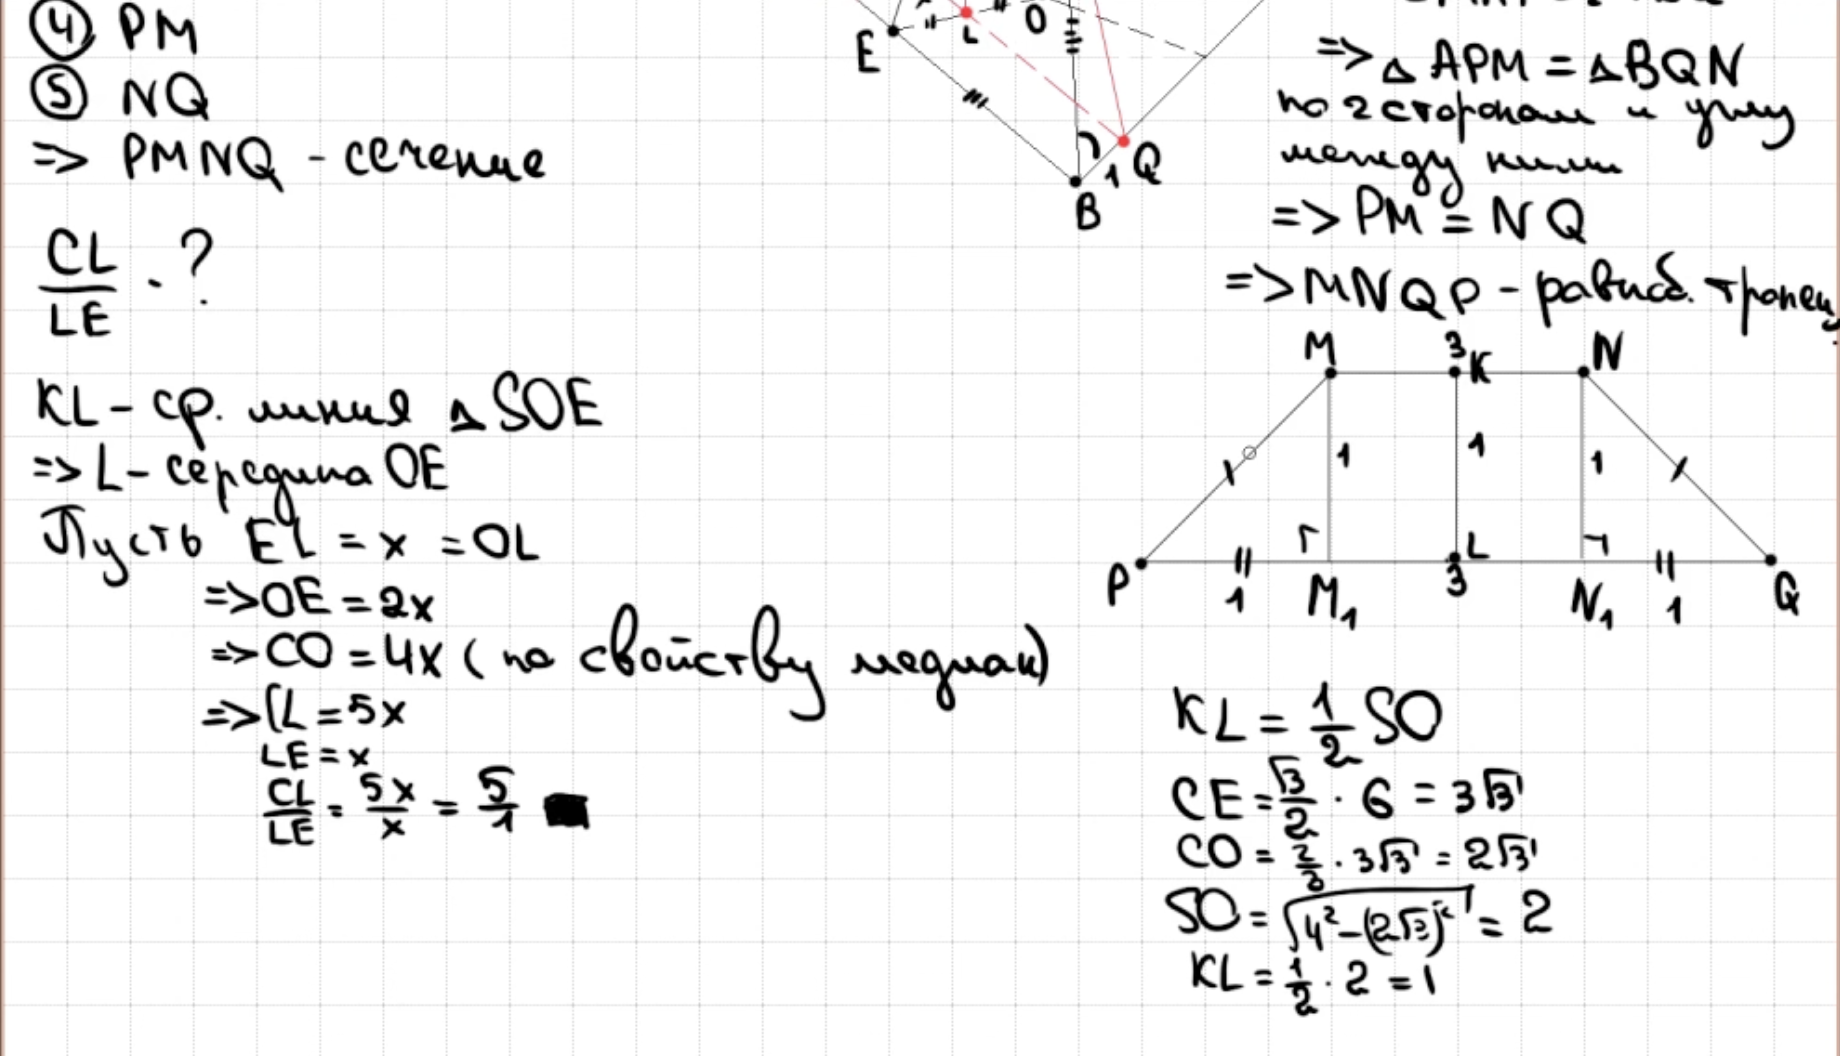 ④ PM
⑤ NQ
=> PMNQ - сечение
CL/LE - ?
KL - ср. линия △SOE
=> L - середина OE
Пусть EL = x = OL
=> OE = 2x
=> CO = 4x (по свойству медиан)
=> CL = 5x
LE = x
CL/LE = 5x/x = 5/1
E
L
O
B
1
Q
=> △APM = △BQN
по 2 сторонам и углу
между ними
=> PM = NQ
=> MNQP - равноб. трапец.
M
3
K
N
1
1
1
P
1
M₁
L
3
N₁
1
Q
KL = 1/2 SO
CE = √3/2 · 6 = 3√3
CO = 2/3 · 3√3 = 2√3
SO = √(4² - (2√3)²) = 2
KL = 1/2 · 2 = 1